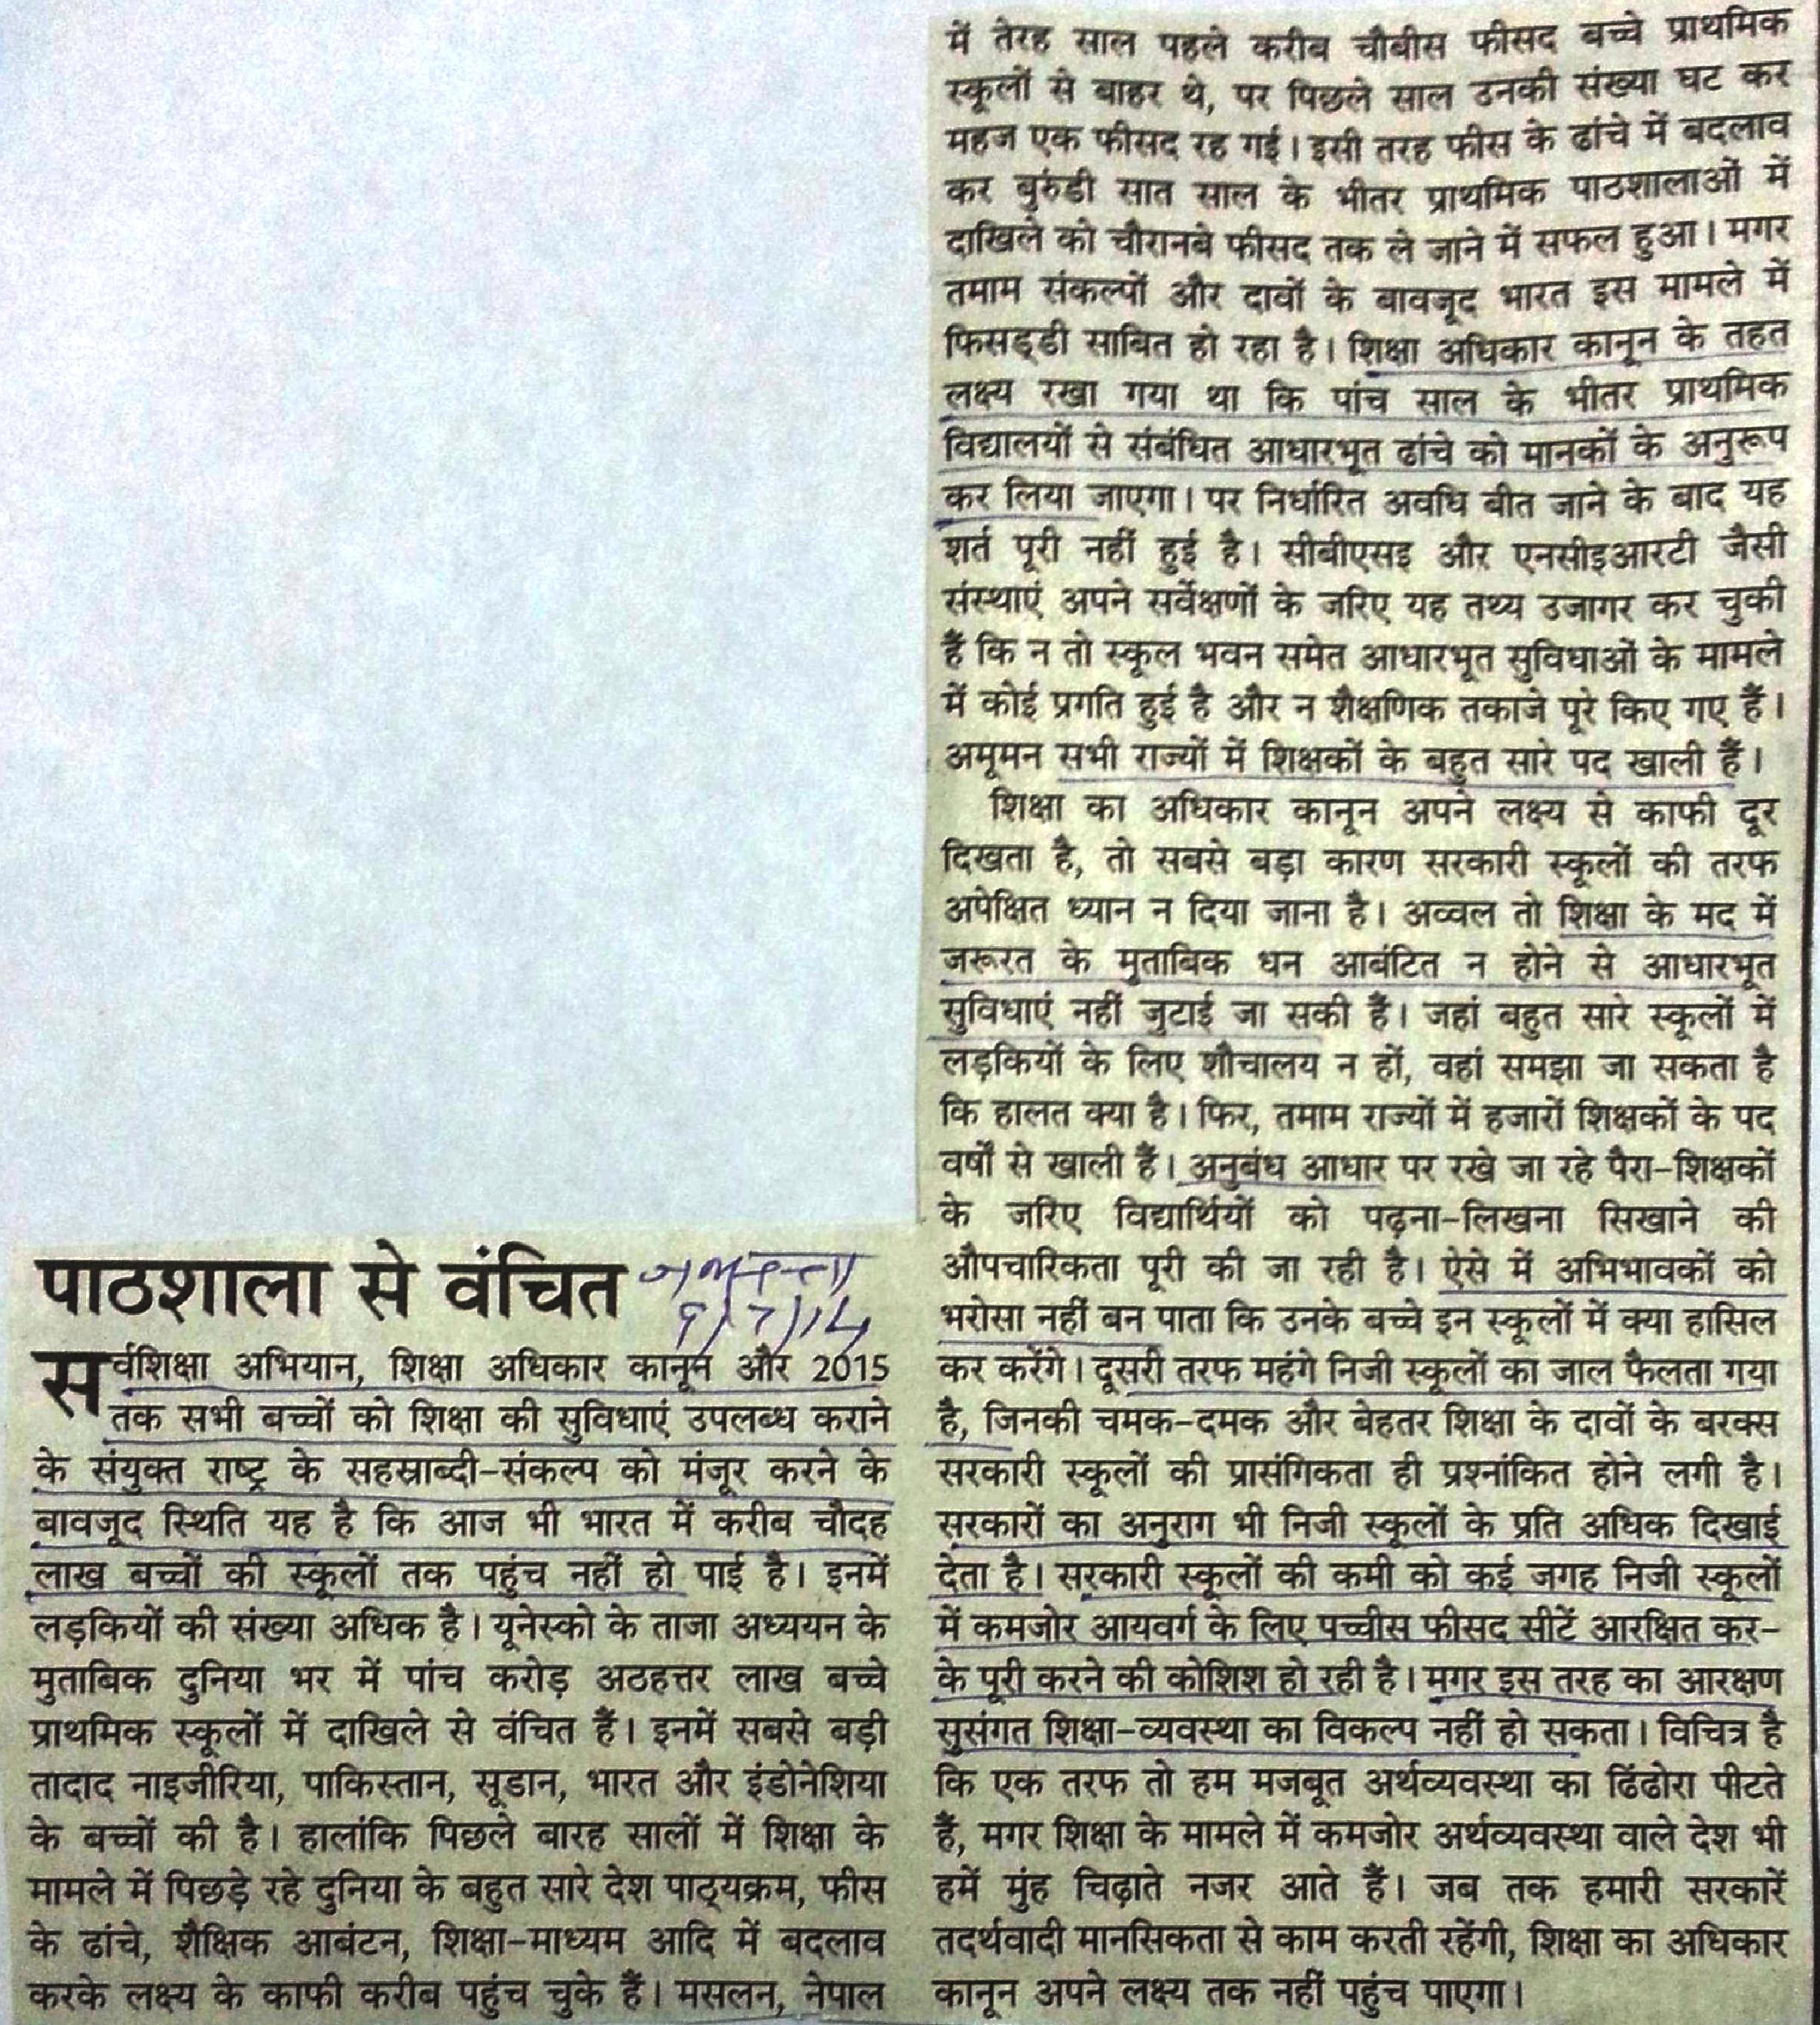 पाठशाला से वंचित जनसत्ता
9/7/14
सर्वशिक्षा अभियान, शिक्षा अधिकार कानून और 2015
तक सभी बच्चों को शिक्षा की सुविधाएं उपलब्ध कराने
के संयुक्त राष्ट्र के सहस्राब्दी-संकल्प को मंजूर करने के
बावजूद स्थिति यह है कि आज भी भारत में करीब चौदह
लाख बच्चों की स्कूलों तक पहुंच नहीं हो पाई है। इनमें
लड़कियों की संख्या अधिक है। यूनेस्को के ताजा अध्ययन के
मुताबिक दुनिया भर में पांच करोड़ अठहत्तर लाख बच्चे
प्राथमिक स्कूलों में दाखिले से वंचित हैं। इनमें सबसे बड़ी
तादाद नाइजीरिया, पाकिस्तान, सूडान, भारत और इंडोनेशिया
के बच्चों की है। हालांकि पिछले बारह सालों में शिक्षा के
मामले में पिछड़े रहे दुनिया के बहुत सारे देश पाठ्यक्रम, फीस
के ढांचे, शैक्षिक आबंटन, शिक्षा-माध्यम आदि में बदलाव
करके लक्ष्य के काफी करीब पहुंच चुके हैं। मसलन, नेपाल
में तेरह साल पहले करीब चौबीस फीसद बच्चे प्राथमिक
स्कूलों से बाहर थे, पर पिछले साल उनकी संख्या घट कर
महज एक फीसद रह गई। इसी तरह फीस के ढांचे में बदलाव
कर बुरुंडी सात साल के भीतर प्राथमिक पाठशालाओं में
दाखिले को चौरानबे फीसद तक ले जाने में सफल हुआ। मगर
तमाम संकल्पों और दावों के बावजूद भारत इस मामले में
फिसड्डी साबित हो रहा है। शिक्षा अधिकार कानून के तहत
लक्ष्य रखा गया था कि पांच साल के भीतर प्राथमिक
विद्यालयों से संबंधित आधारभूत ढांचे को मानकों के अनुरूप
कर लिया जाएगा। पर निर्धारित अवधि बीत जाने के बाद यह
शर्त पूरी नहीं हुई है। सीबीएसइ और एनसीइआरटी जैसी
संस्थाएं अपने सर्वेक्षणों के जरिए यह तथ्य उजागर कर चुकी
हैं कि न तो स्कूल भवन समेत आधारभूत सुविधाओं के मामले
में कोई प्रगति हुई है और न शैक्षणिक तकाजे पूरे किए गए हैं।
अमूमन सभी राज्यों में शिक्षकों के बहुत सारे पद खाली हैं।
शिक्षा का अधिकार कानून अपने लक्ष्य से काफी दूर
दिखता है, तो सबसे बड़ा कारण सरकारी स्कूलों की तरफ
अपेक्षित ध्यान न दिया जाना है। अव्वल तो शिक्षा के मद में
जरूरत के मुताबिक धन आबंटित न होने से आधारभूत
सुविधाएं नहीं जुटाई जा सकी हैं। जहां बहुत सारे स्कूलों में
लड़कियों के लिए शौचालय न हों, वहां समझा जा सकता है
कि हालत क्या है। फिर, तमाम राज्यों में हजारों शिक्षकों के पद
वर्षों से खाली हैं। अनुबंध आधार पर रखे जा रहे पैरा-शिक्षकों
के जरिए विद्यार्थियों को पढ़ना-लिखना सिखाने की
औपचारिकता पूरी की जा रही है। ऐसे में अभिभावकों को
भरोसा नहीं बन पाता कि उनके बच्चे इन स्कूलों में क्या हासिल
कर करेंगे। दूसरी तरफ महंगे निजी स्कूलों का जाल फैलता गया
है, जिनकी चमक-दमक और बेहतर शिक्षा के दावों के बरक्स
सरकारी स्कूलों की प्रासंगिकता ही प्रश्नांकित होने लगी है।
सरकारों का अनुराग भी निजी स्कूलों के प्रति अधिक दिखाई
देता है। सरकारी स्कूलों की कमी को कई जगह निजी स्कूलों
में कमजोर आयवर्ग के लिए पच्चीस फीसद सीटें आरक्षित कर-
के पूरी करने की कोशिश हो रही है। मगर इस तरह का आरक्षण
सुसंगत शिक्षा-व्यवस्था का विकल्प नहीं हो सकता। विचित्र है
कि एक तरफ तो हम मजबूत अर्थव्यवस्था का ढिंढोरा पीटते
हैं, मगर शिक्षा के मामले में कमजोर अर्थव्यवस्था वाले देश भी
हमें मुंह चिढ़ाते नजर आते हैं। जब तक हमारी सरकारें
तदर्थवादी मानसिकता से काम करती रहेंगी, शिक्षा का अधिकार
कानून अपने लक्ष्य तक नहीं पहुंच पाएगा।